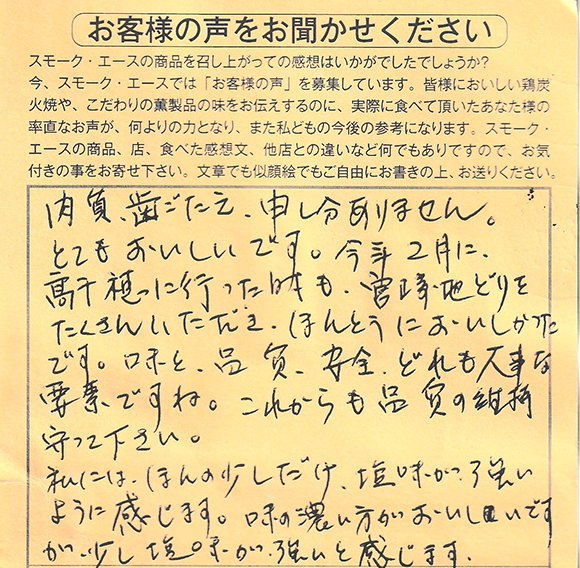 お客様の声をお聞かせください
スモーク・エースの商品を召し上がっての感想はいかがでしたでしょうか?
今、スモーク・エースでは「お客様の声」を募集しています。皆様においしい鶏炭
火焼や、こだわりの薫製品の味をお伝えするのに、実際に食べて頂いたあなた様の
率直なお声が、何よりの力となり、また私どもの今後の参考になります。スモーク・
エースの商品、店、食べた感想文、他店との違いなど何でもありですので、お気
付きの事をお寄せ下さい。文章でも似顔絵でもご自由にお書きの上、お送りください。
肉質、歯ごたえ、申し分ありません。
とてもおいしいです。今年2月に、
高千穂に行った時も、宮崎地どりを
たくさんいただき、ほんとうにおいしかった
です。味と、品質、安全、どれも大事な
要素ですね。これからも品質の維持
守って下さい。
私には、ほんの少しだけ、塩味が強い
ように感じます。味の濃い方がおいしいです
が、少し塩味が強いと感じます。